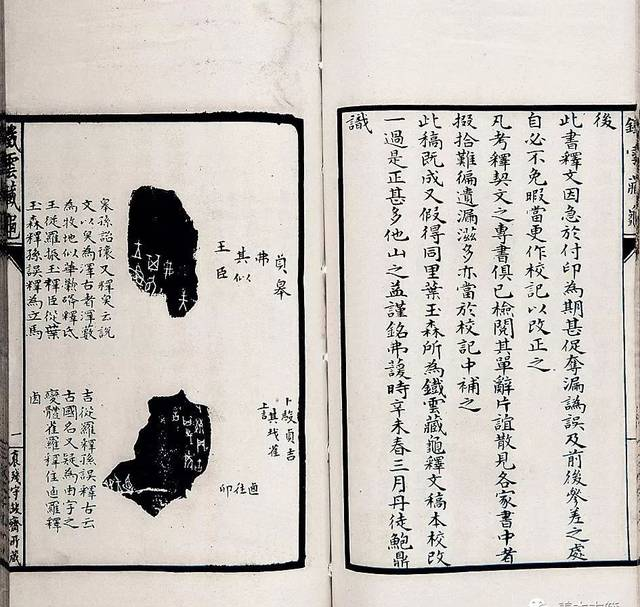 鐵雲藏龜
後
此書釋文因急於付印為期甚促奪漏譌誤及前後參差之處
自必不免暇當更作校記以改正之
凡考釋契文之專書俱已檢閱其單辭片誼散見各家書中者
掇拾難徧遺漏滋多亦當於校記中補之
此稿既成又假得同里葉玉森所為鐵雲藏龜釋文稿本校改
一過是正甚多他山之益謹銘弗諼時辛未春三月丹徒鮑鼎
識
貞皋
弗
其以
王臣
皋孫詒讓又釋奐云說
文以奐為澤古者澤藪
為牧地似釋氏
王從羅振玉釋臣從葉
玉森釋孫誤釋為立馬
卜貞吉
其雀
往卬
吉從羅釋孫誤釋古云
古國名又疑為由字之
變體雀羅釋隹迪羅釋
鹵
鐵雲藏龜
一
抱殘守缺齋所藏